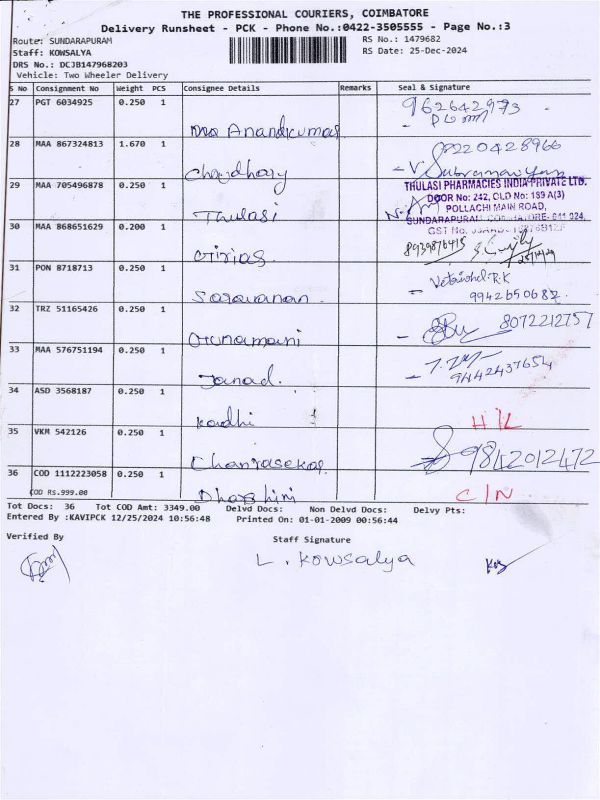 THE PROFESSIONAL COURIERS, COIMBATORE
Delivery Runsheet - PCK - Phone No.:0422-3505555 - Page No.:3
Route: SUNDARAPURAM
RS No.: 1479682
Staff: KOWSALYA
RS Date: 25-Dec-2024
DRS No.: DCJB147968203
Vehicle: Two Wheeler Delivery
S No Consignment No Weight PCS Consignee Details Remarks Seal & Signature
27 PGT 6034925 0.250 1 Anandkumar 9626642973
28 MAA 867324813 1.670 1 Choudhary 8220428966
V Subramaniyan
29 MAA 705496878 0.250 1 Thulasi
THULASI PHARMACIES INDIA PRIVATE LTD.
DOOR No: 242, OLD No: 169 A(3)
POLLACHI MAIN ROAD,
SUNDARAPURAM, COIMBATORE- 641 024.
GST No.
30 MAA 868651629 0.200 1 Girias 8939876415
31 PON 8718713 0.250 1 Saravanan
9942650687
32 TRZ 51165426 0.250 1 Gunamani 8072212757
33 MAA 576751194 0.250 1 Janad. 9442437654
34 ASD 3568187 0.250 1 Kandhi H/L
35 VKM 542126 0.250 1 Chanrasekar 9842012472
36 COD 1112223058 0.250 1 Dharshini C/N
COD RS.999.00
Tot Docs: 36 Tot COD Amt: 3349.00 Delvd Docs: Non Delvd Docs: Delvy Pts:
Entered By :KAVIPCK 12/25/2024 10:56:48 Printed On: 01-01-2009 00:56:44
Verified By
Staff Signature
L. Kowsalya